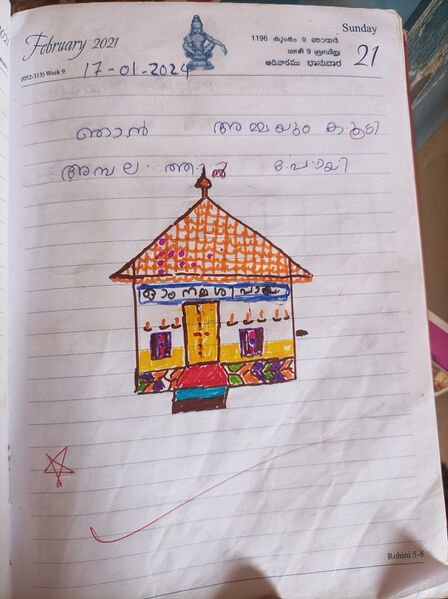 February 2021
Sunday
21
1196 കുംഭം 9 ഞായർ
மாசி 9 ஞாயிறு
ಆದಿವಾರವು ಭಾನುವಾರ
(052-313) Week 9
17-01-2024
ഞാൻ അമ്മയും കൂടി
അമ്പല ത്തിൽ പോയി
ഓം നമശിവായ
Rohini 5-8